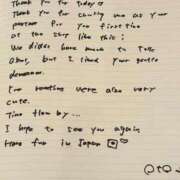 Thank you for today
Thank you for country me as your
partner for you first time
at the shop like this!
We didn't have much to talk
about, but I liked your gentle
demeanor.
Your reactions were also very
cute.
Time flew by...
I hope to see you again
Have fun in Japan